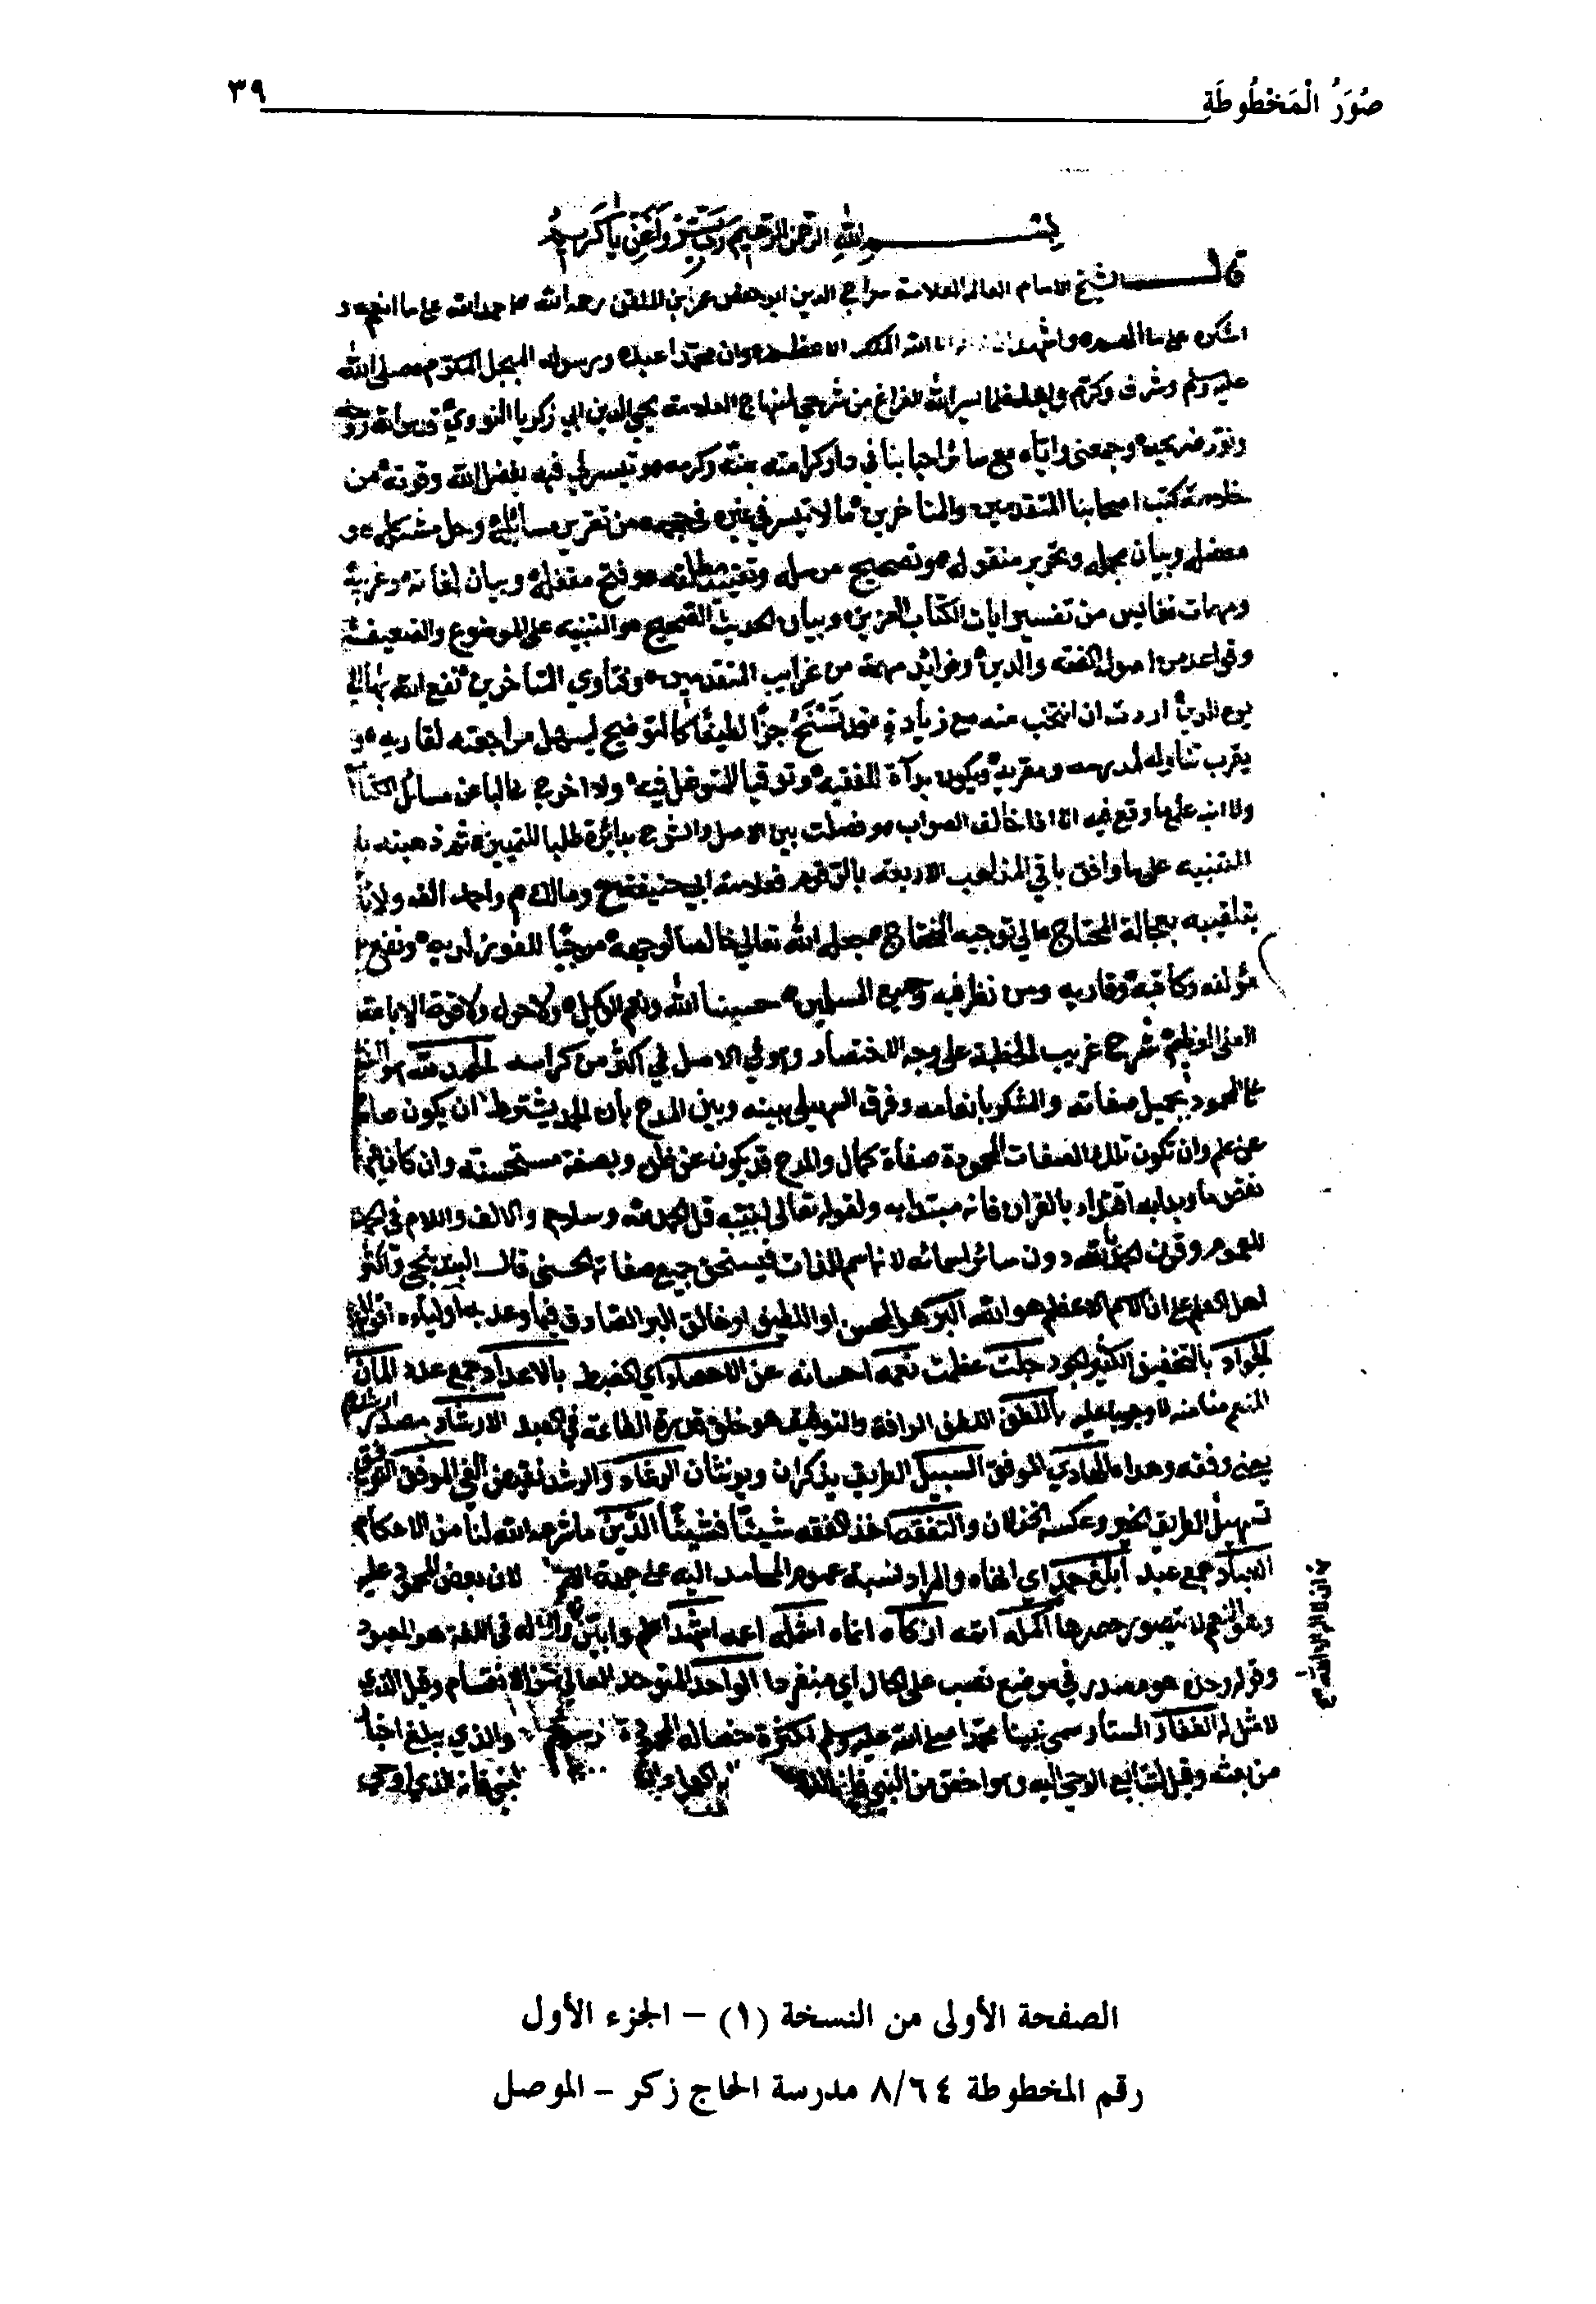 صُوَرُ الْمَخْطُوطَةِ
٣٩
بسم الله الرحمن الرحيم رب يسر وأعن يا كريم
قال الشيخ الامام العالم العلامة سراج الدين ابو حفص عمر ابن الملقن رحمه الله احمد الله على ما انعم و
اشكره على ما واشهد ان الله الاعظم وان محمدا عبده ورسوله المبجل المكرم صلى الله
عليه وسلم وشرف وكرم وبعد فلما يسر الله الفراغ من شرحي لمنهاج العلامة محيي الدين ابي زكريا النووي قدس الله روحه
ونور ضريحه وجمعني واياه مع سائر احبابنا في دار كرامته بمنه وكرمه وتيسر لي فيه بفضل الله وقوته من
خلاصة كتب اصحابنا المتقدمين والمتأخرين ما لا تيسر في غيره في حجمه من تقرير مسائله وحل مشكله و
معضله وبيان مجمله وتحرير منقوله وتصحيح مرسله وتقييد مطلقه وفتح مقفله وبيان لغاته وغريبه
ومهمات نفايس من تفسير ايات الكتاب العزيز وبيان الحديث الصحيح والتنبيه على الموضوع والضعيف
وقواعد من اصول الفقه والدين وفوائد مهمة من غرايب المتقدمين وفتاوي المتأخرين نفع الله بها الى
يوم الدين اردت ان انتخب منه مع زيادة جزأ لطيفا كالتوضيح ليسهل مراجعته لقاريه و
يقرب تناوله لمدرسه ومقريه ويكون مرآة للفقيه وتوقيا للتوغل فيه ولا اخرج غالبا عن مسائل الكتاب
ولا انبه على ما وقع فيه الا اذا خالف الصواب وفصلت بين الاصل والشرح بدائرة طلبا للتمييز ثم ذهبته
التنبيه على ما وافق باقي المذاهب الاربعة بالرقوم فعلامة ابي حنيفة ح ومالك م واحمد الف
بتلقيبه بعجالة المحتاج الى توجيه المنهاج جعله الله تعالى خالصا لوجهه موجبا للفوز لديه ونفع
مؤلفه وكاتبه وقاريه ومن نظر فيه وجميع المسلمين حسبنا الله ونعم الوكيل ولا حول ولا قوة الا بالله
العلي العظيم شرح غريب الخطبة على وجه الاختصار وهو في الاصل في اكثر من كراسه الحمد لله هو الثناء
على المحمود بجميل صفاته والشكر بانعامه وفرق السهيلي بينه وبين المدح بان الحمد يشترط ان يكون صادرا
عن علم وان تكون تلك الصفات المحمودة صفات كمال والمدح قد يكون عن ظن وبصفة مستحسنة وان كان فيها
نقص ما وبدا به اقتداء بالقران فانه مبتدا به ولقوله تعالى لنبيه قل الحمد لله وسلام والالف واللام في الحمد
للعموم وقرن الحمد بالله دون سائر اسمائه لانه اسم للذات فيستحق جميع صفاته الحسنى قال البندنيجي واكثر
اهل العلم على ان الاسم الاعظم هو الله البر هو المحسن او اللطيف او خالق البر او الصادق فيما وعد به اولياءه اقوال
الجواد بالتخفيف الكثير الجود جلت عظمت نعمه احسانه عن الاحصاء اي الضبط بالاعداد جمع عدد المان
المنعم منا منه لا وجوبا عليه باللطف اللطف الرافة والتوفيق هو خلق قدرة الطاعة في العبد الارشاد مصدر ارشده
يعني وفقه وهداه الهادي الموفق السبيل الطريق يذكران ويونثان الرشاد والرشد نقيض الغي الموفق
تسهيل الطريق الخير وعكسه الخذلان والتفقه اخذ الفقه شيئا فشيئا الدين ما شرعه الله لنا من الاحكام
العباد جمع عبد ابلغ حمد اي انهاه والمراد نسبة عموم المحامد اليه على جهة لان بعض المحمود عليه
وهو النعم لا يتصور حصرها اكمله اتمه ازكاه انماه اشمله اعمه اشهد اعلم وابين والاله في اللغة هو المعبود
وقوله وحده هو مصدر في موضع نصب على الحال اي منفردا الواحد المتوحد المتعالي عن الانقسام وقيل الذي
لا مثل له الغفار الستار سمي نبينا محمدا صلى الله عليه وسلم لكثرة خصاله المحمودة والذي يبلغ
من بعثه وقيل المتابع الوحي اليه وهو اخص من النبي
الصفحة الأولى من النسخة (١) – الجزء الأول
رقم المخطوطة ٨/٦٤ مدرسة الحاج زكر – الموصل